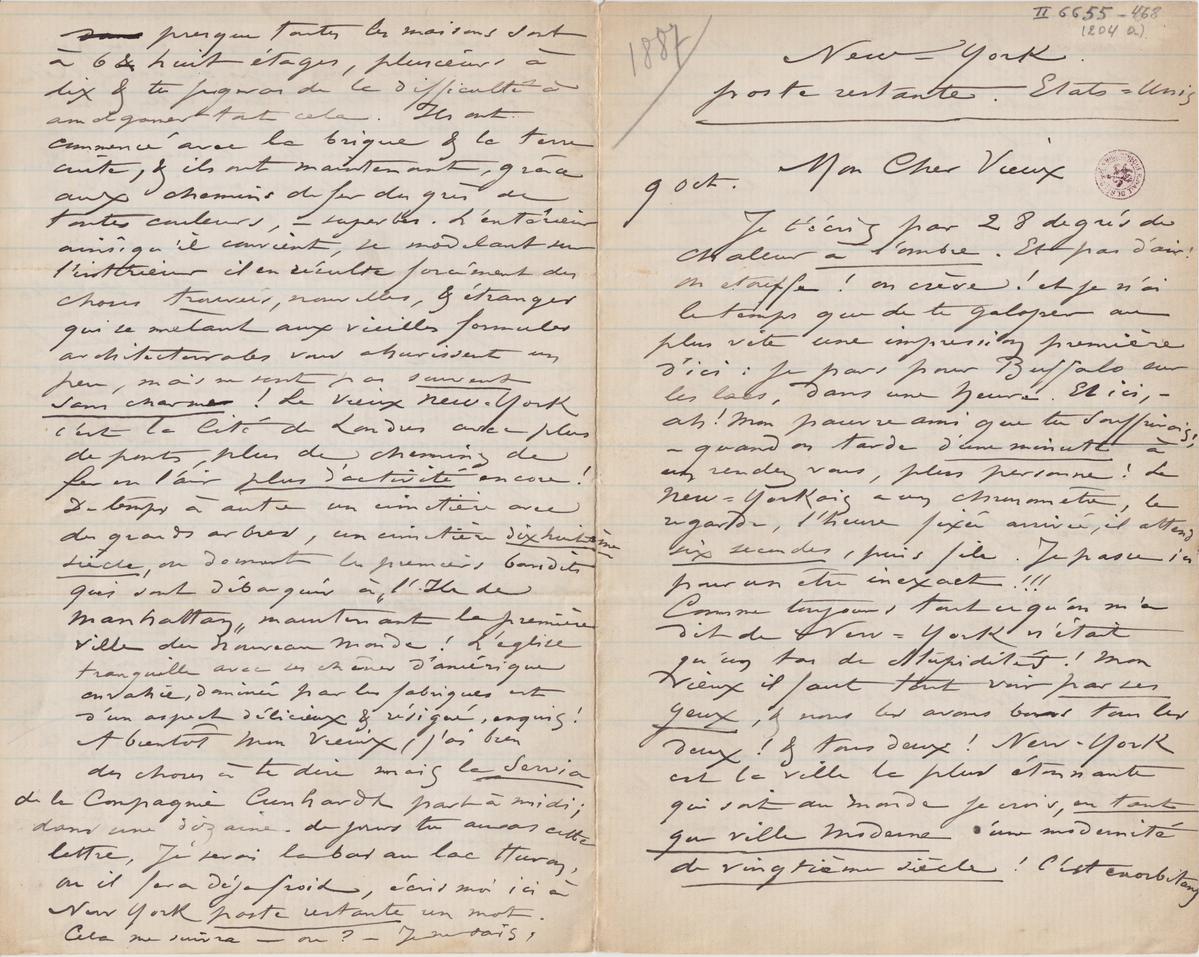 II 6655 - 468
(204 a)
1887
New-York.
poste restante. Etats=Unis
9 oct. Mon Cher Vieux
Je t'écris par 28 degrés de
chaleur à l'ombre. Et pas d'air!
on étouffe! on crève! et je n'ai
le temps que de te galoper au
plus vite une impression première
d'ici: je pars pour Buffalo sur
les lacs, dans une heure. Et ici, -
ah! mon pauvre ami que tu souffrirais,
- quand on tarde d'une minute à
un rendez vous, plus personne! Le
New=Yorkais a un chronomètre, le
regarde, l'heure fixée arrivée, il attend
six secondes, puis file. Je passe ici
pour un être inexact!!!
Comme toujours tout ce qu'on m'a
dit de New=York n'était
qu'un tas de stupidités! Mon
vieux il faut tout voir par ses
yeux, & nous les avons bons tous les
deux! & tous deux! New-York
est la ville la plus étonnante
qui soit au monde je crois, en tant
que ville moderne d'une modernité
de vingtième siècle! C'est exorbitant
presque toutes les maisons sont
à 6 & huit étages, plusieurs à
dix & tu jugeras de la difficulté à
tout cela. Ils ont
commencé avec la brique & la terre
cuite, & ils ont maintenant, grâce
aux chemins de fer du grès de
toutes couleurs, - superbes. L'extérieur
ainsi qu'il convient, se modelant sur
l'intérieur il en résulte forcément des
choses trouvées, nouvelles, & étranges
qui se mêlant aux vieilles formules
architecturales vous ahurissent un
peu, mais ne sont pas souvent
sans charme! Le vieux New-York
c'est la Cité de Londres avec plus
de ponts, plus de chemins de
fer en l'air plus d'activité encore!
De temps à autre un cimetière avec
des grands arbres, un cimetière dix huitième
siècle, où dorment les premiers bandits
qui sont débarqués à "l'Ile de
Manhattan" maintenant la première
ville du nouveau monde! L'église
tranquille avec ses chênes d'amérique
envahie, dominée par les fabriques est
d'un aspect délicieux & résigné, exquis!
A bientôt mon vieux, j'ai bien
des choses à te dire mais la Servia
de la Compagnie Cunhardt part à midi;
dans une dizaine de jours tu auras cette
lettre, Je serai là bas au lac Huron,
où il fera déjà froid, écris moi ici à
New York poste restante un mot.
Cela me suivra - où? - Je ne sais,